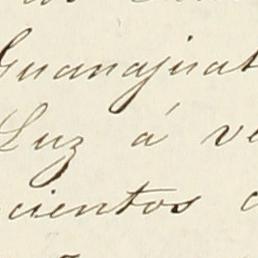 Guanajuat
Luz á ve
cientos